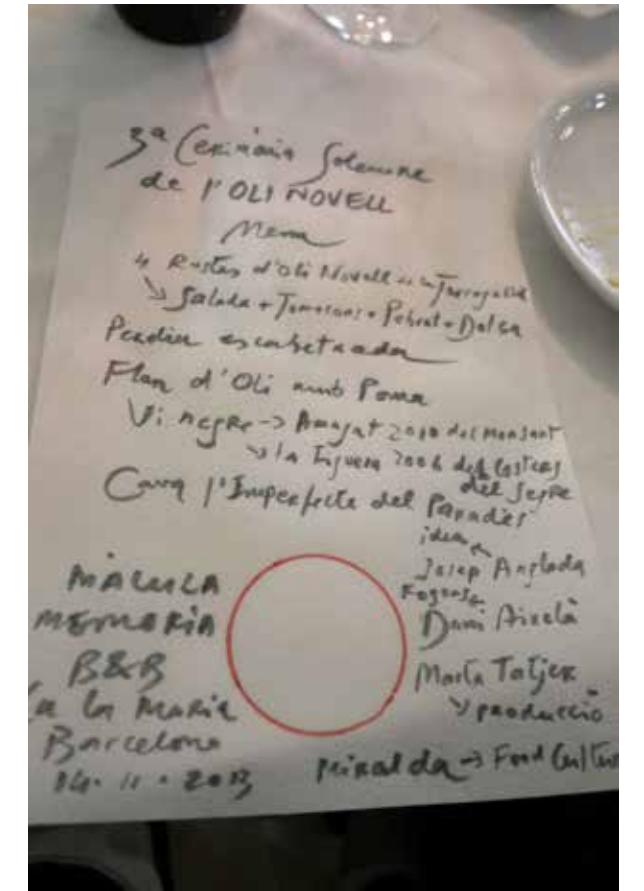 3ª Cerimònia Solemne
de l'OLI NOVELL
Menu
4 Rustes d'Oli Novell de la
Salada + + Pebrat + Dolsa
Perdiu escabetxada
Flan d'Oli amb Poma
Vi negre -> Amagat 2010 del Monsant
-> la Figuera 2006 del Costers
del Segre
Cava l'Imperfecte del Paradís
idea
Josep Anglada
Fogons
Dani Aixelà
Marta Tatjer
producció
Miralda -> Food Cultura
MEMORIA
B&B
Ca la Maria
Barcelona
14.11.2013